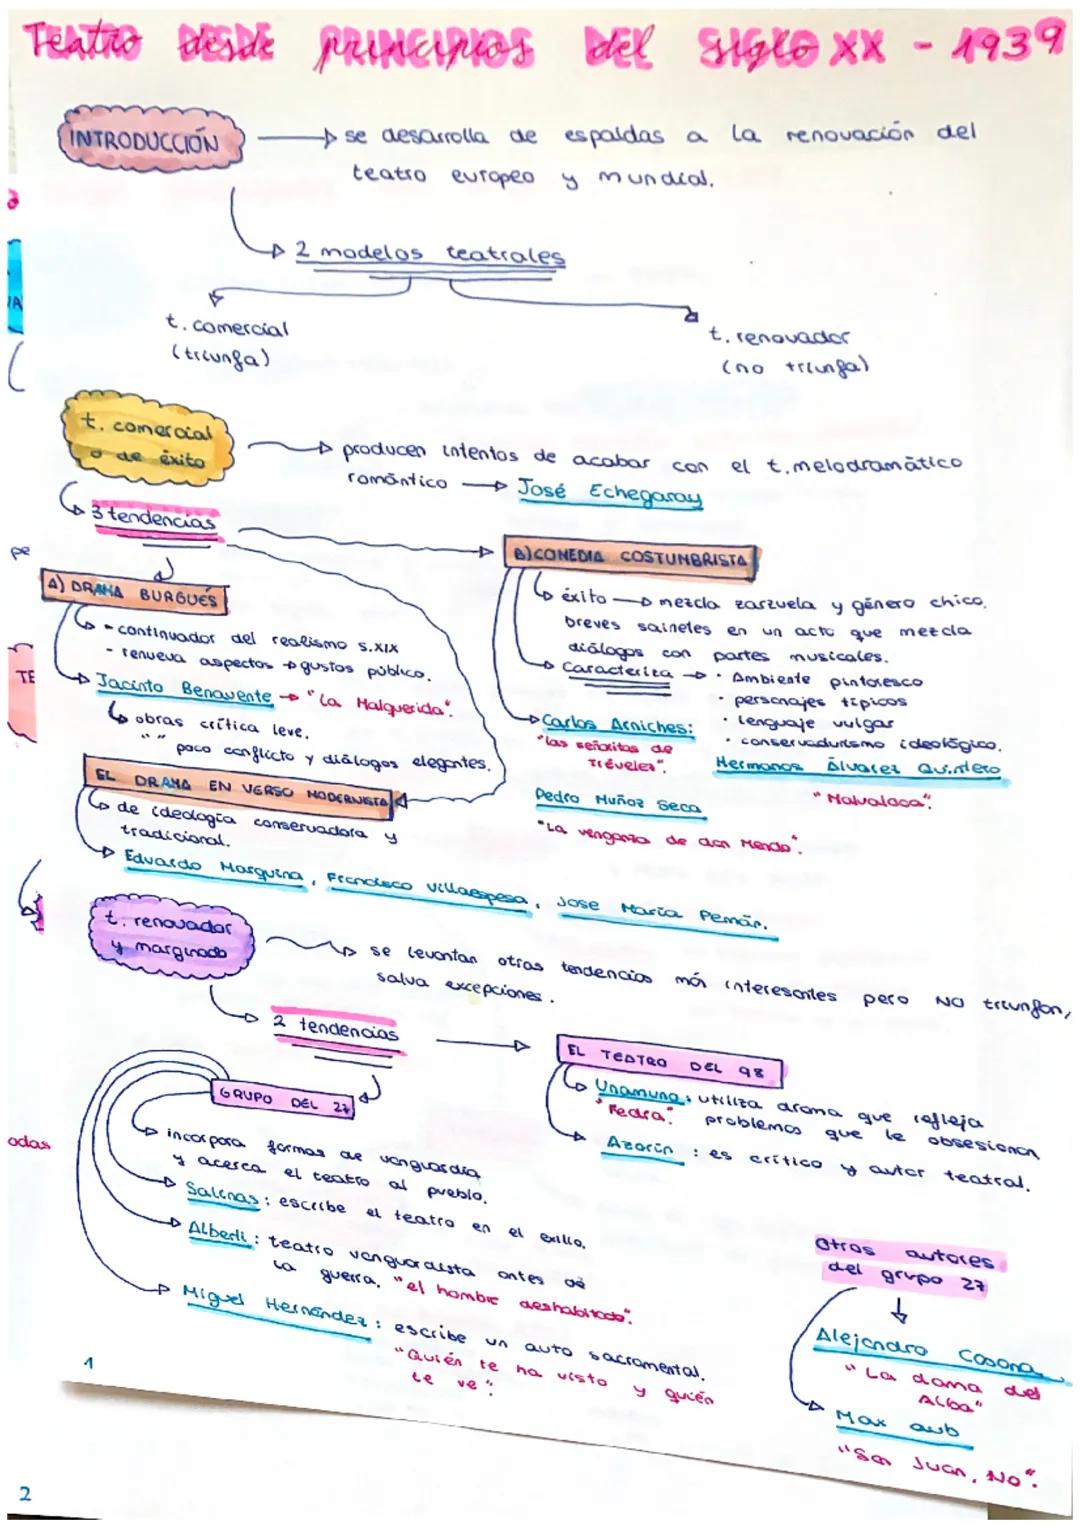 TEATRO DESDE PRINCIPIOS DEL SIGLO XX - 1939
INTRODUCCIÓN
se desarrolla de espaldas a la renovación del
teatro europeo y mundial.
2 modelos teatrales
t. comercial
(triunfa)
t. renovador
(no triunfa)
t. comercial
o de éxito
producen intentos de acabar con el t. melodramático
romántico → José Echegaray
3 tendencias
A) DRAMA BURGUÉS
- continuador del realismo s.XIX
- renueva aspectos → gustos público.
Jacinto Benavente → "La Malquerida".
obras crítica leve.
" " poco conflicto y diálogos elegantes.
B) COMEDIA COSTUMBRISTA
éxito → mezcla zarzuela y género chico.
breves sainetes en un acto que mezcla
diálogos con partes musicales.
Caracteriza → · Ambiente pintoresco
· personajes típicos
· lenguaje vulgar
· conservadurismo ideológico.
Carlos Arniches:
"las señoritas de
Trévelez".
Hermanos Álvarez Quintero
"Malvaloca".
Pedro Muñoz Seca
"La venganza de don Mendo".
EL DRAMA EN VERSO MODERNISTA
de ideología conservadora y
tradicional.
Eduardo Marquina, Francisco Villaespesa, Jose María Pemán.
t. renovador
y marginado
se levantan otras tendencias más interesantes pero NO triunfan,
salva excepciones.
2 tendencias
EL TEATRO DEL 98
Unamuno: utiliza drama que refleja
"Fedra". problemas que le obsesionan
Azorín : es crítico y autor teatral.
GRUPO DEL 27
incorpora formas de vanguardia
y acerca el teatro al pueblo.
Salinas: escribe el teatro en el exilio.
Alberti: teatro vanguardista antes de
la guerra. "el hombre deshabitado".
Miguel Hernández: escribe un auto sacramental.
"Quién te ha visto y quién
te ve".
Otros autores
del grupo 27
Alejandro Casona
"La dama del
Alba"
Max aub
"San Juan, No".
1
2
pe
TE
odas
VA